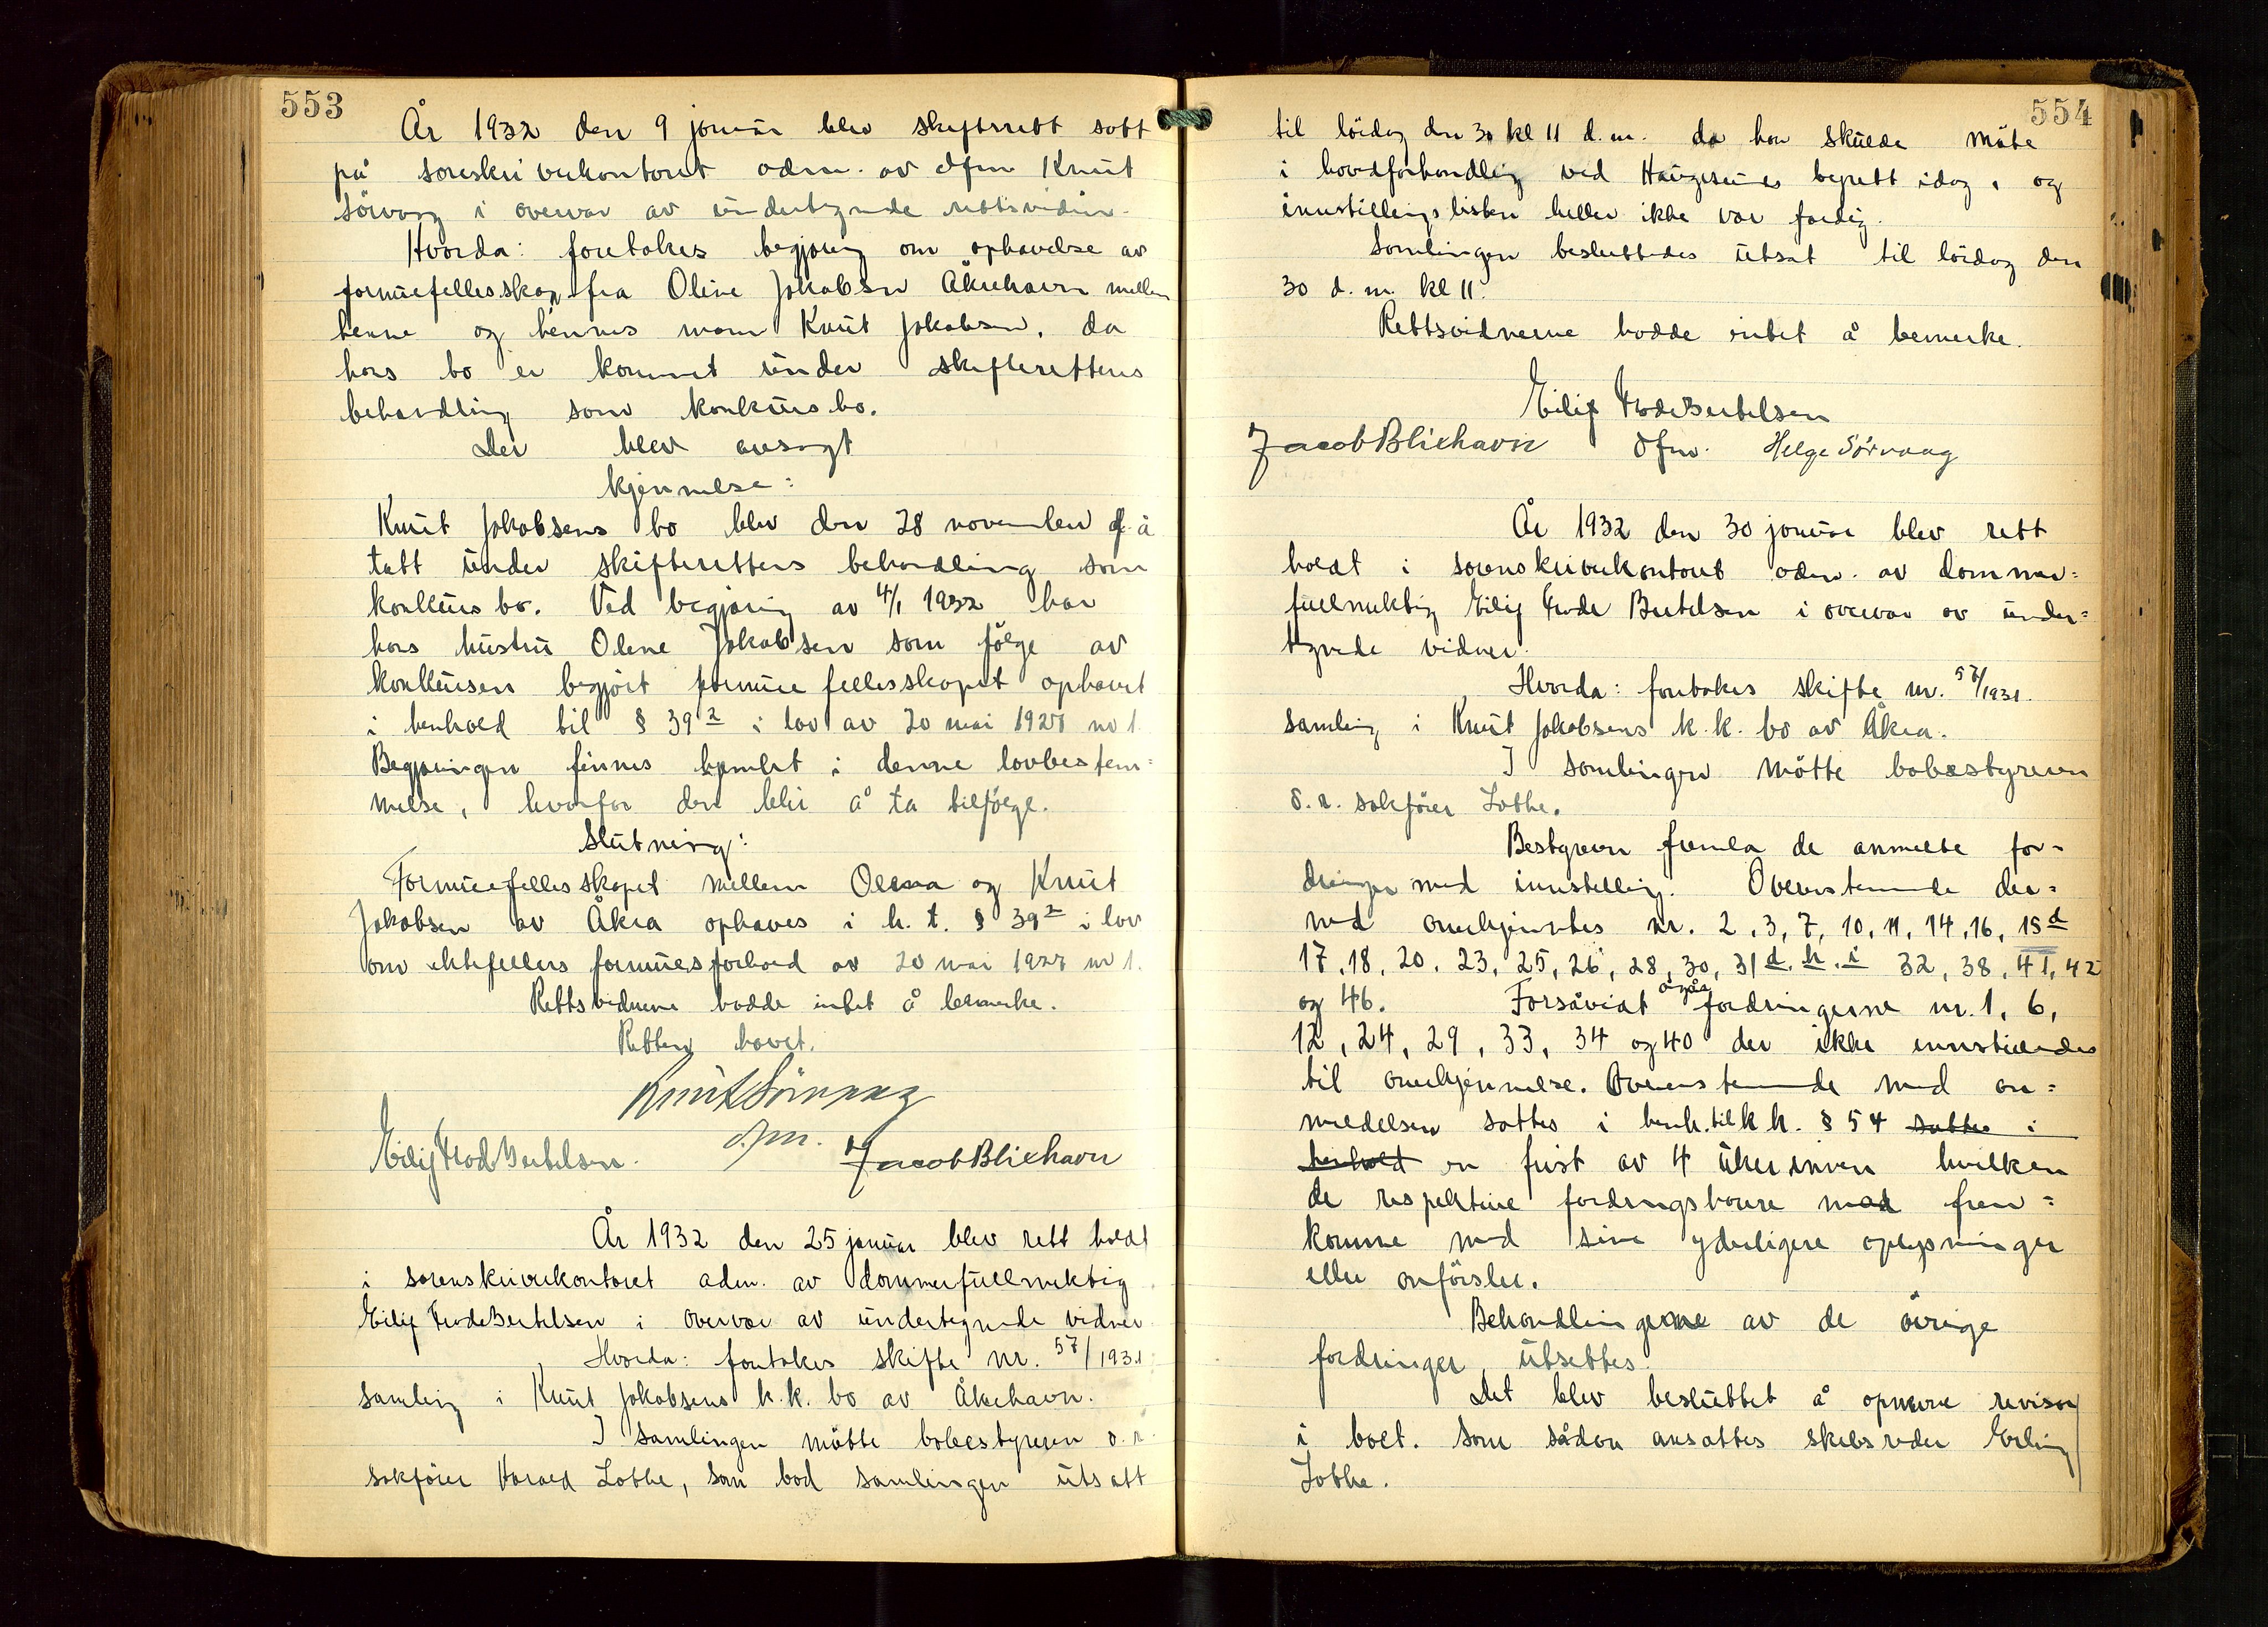 553
År 1932 den 9 januar blev skifterett satt
på sorenskriverkontoret adm. av dfm Knut
Sörvaag i overvær av undertegnede rettsvidner.
Hvorda: foretokes begjæring om ophevelse av
formuefellesskap fra Oline Jakobsen Åkrehavn mellem
henne og hennes mann Knut Jakobsen, da
hans bo er kommet under skifterettens
behandling som konkursbo.
Der blev avsagt
kjennelse:
Knut Jakobsens bo blev den 28 november f. å
tatt under skifterettens behandling som
konkursbo. Ved begjæring av 4/1 1932 har
hans hustru Olene Jakobsen som følge av
konkursen begjært formuefellesskapet ophevet
i henhold til § 39 2 i lov av 20 mai 1927 nr 1.
Begjæringen finnes hjemlet i denne lovbestem=
melse, hvorfor den blir å ta tilfølge.
Slutning:
Formuefellesskapet mellem Olena og Knut
Jakobsen av Åkra opheves i h. t. § 39 2 i lov
om ektefellers formuesforhold av 20 mai 1927 nr 1.
Rettsvidnene hadde intet å bemerke.
Retten hevet.
Knut Sörvaag
dfm.
Eilif Frode Bertelsen. Jacob Blixhavn
År 1932 den 25 januar blev rett holdt
i sorenskriverkontoret adm. av dommerfullmektig
Eilif Frode Bertelsen i overvær av undertegnede vidner
Hvorda: foretokes skifte nr. 57/1931
samling i Knut Jakobsens k.k. bo av Åkrehavn.
I samlingen møtte bobestyreren o. r.
sakfører Harald Lothe, som bad samlingen utsatt
554
til lördag den 30 kl 11 d. m. da han skulde møte
i hovedforhandling ved Haugesunds byrett idag, og
innstillingslisten heller ikke var færdig.
Samlingen besluttedes utsat til lördag den
30 d. m. kl 11.
Rettsvidnerne hadde intet å bemerke.
Eilif Frode Bertelsen
Jacob Blixhavn dfm. Helge Sörvaag
År 1932 den 30 januar blev rett
holdt i sorenskriverkontoret adm. av dommer=
fullmektig Eilif Frode Bertelsen i overvær av under=
tegnede vidner.
Hvorda: foretokes skifte nr. 57/1931.
samling i Knut Jakobsens k.k. bo av Åkra.
I samlingen møtte bobestyreren
o. r. sakfører Lothe.
Bestyreren fremla de anmeldte for-
dringer med innstilling. Overenstemmende der=
med anerkjentes nr. 2, 3, 7, 10, 11, 14, 16, 15 d
17, 18, 20, 23, 25, 26, 28, 30, 31 d. h. i 32, 38, 41, 42
og 46. Forsåvidt angåa fordringerne nr. 1, 6,
12, 24, 29, 33, 34 og 40 der ikke innstilledes
til anerkjennelse. Overenstemmende med an=
meldelsen sattes i henh. til k.k. § 54 sattes i
henhold en frist av 4 uker innen hvilken
de respektive fordringshavere med frem=
komme med sine yderligere oplysninger
eller anførsler.
Behandlingerne av de øvrige
fordringer utsettes.
Det blev besluttet å opnevne revisor
i boet. Som sådan ansattes skibsreder Erling
Lothe.